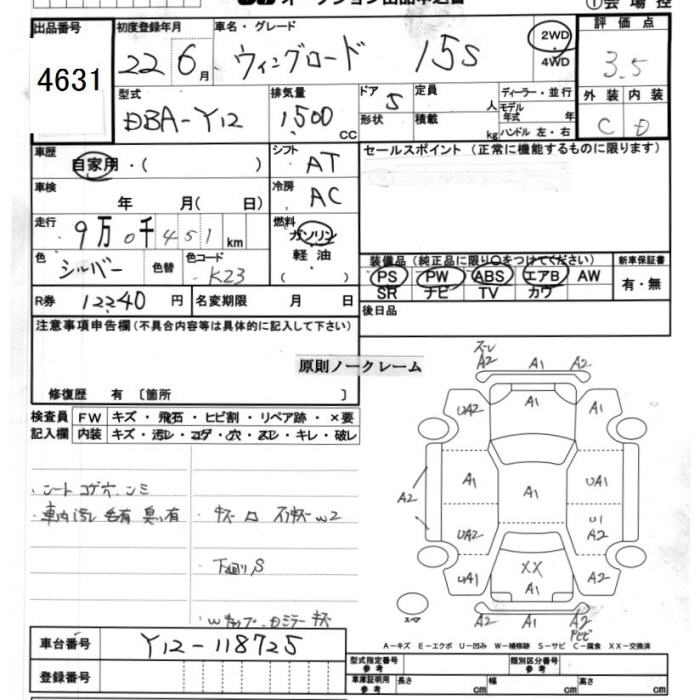 出品番号
4631
初度登録年月
22 6月
車名・グレード
ウィングロード 15S
2WD
4WD
評価点
3.5
外装 内装
C D
型式
DBA-Y12
排気量
1,500 CC
ドア 5
形状
定員 人
積載 kg
ディーラー・並行
モデル
年式 年
ハンドル 左・右
車歴
自家用・( )
シフト
AT
セールスポイント (正常に機能するものに限ります)
車検
年 月( 日)
冷房
AC
走行
9万0千451km
燃料
ガソリン
軽油
( )
色
シルバー
色替
色コード
K23
装備品 (純正品に限り○をつけてください)
PS PW ABS エアB AW
SR ナビ TV カワ
新車保証書
有・無
R券 12240 円
名変期限 月 日
後日品
注意事項申告欄(不具合内容等は具体的に記入して下さい)
原則ノークレーム
修復歴 有 〔箇所 〕
検査員
記入欄
FW キズ・飛石・ヒビ割・リペア跡・×要
内装 キズ・汚レ・コゲ・穴・スレ・キレ・破レ
・シートコゲ穴、シミ
・車内汚レ 毛有 臭い有
下廻りS
スレ
A2 A1 A2
UA2 A1 A1
A2 A1 A1 UA1
UA2 U1
A2
XX
UA1 A1 A2
A2 A1 A2
スペア
A-キズ E-エクボ U-凹み W-補修跡 S-サビ C-腐食 XX-交換済
車台番号
Y12-118725
登録番号
型式指定番号
参考
類別区分番号
参考
車庫証明用
参考
長さ cm
幅 cm
高さ cm